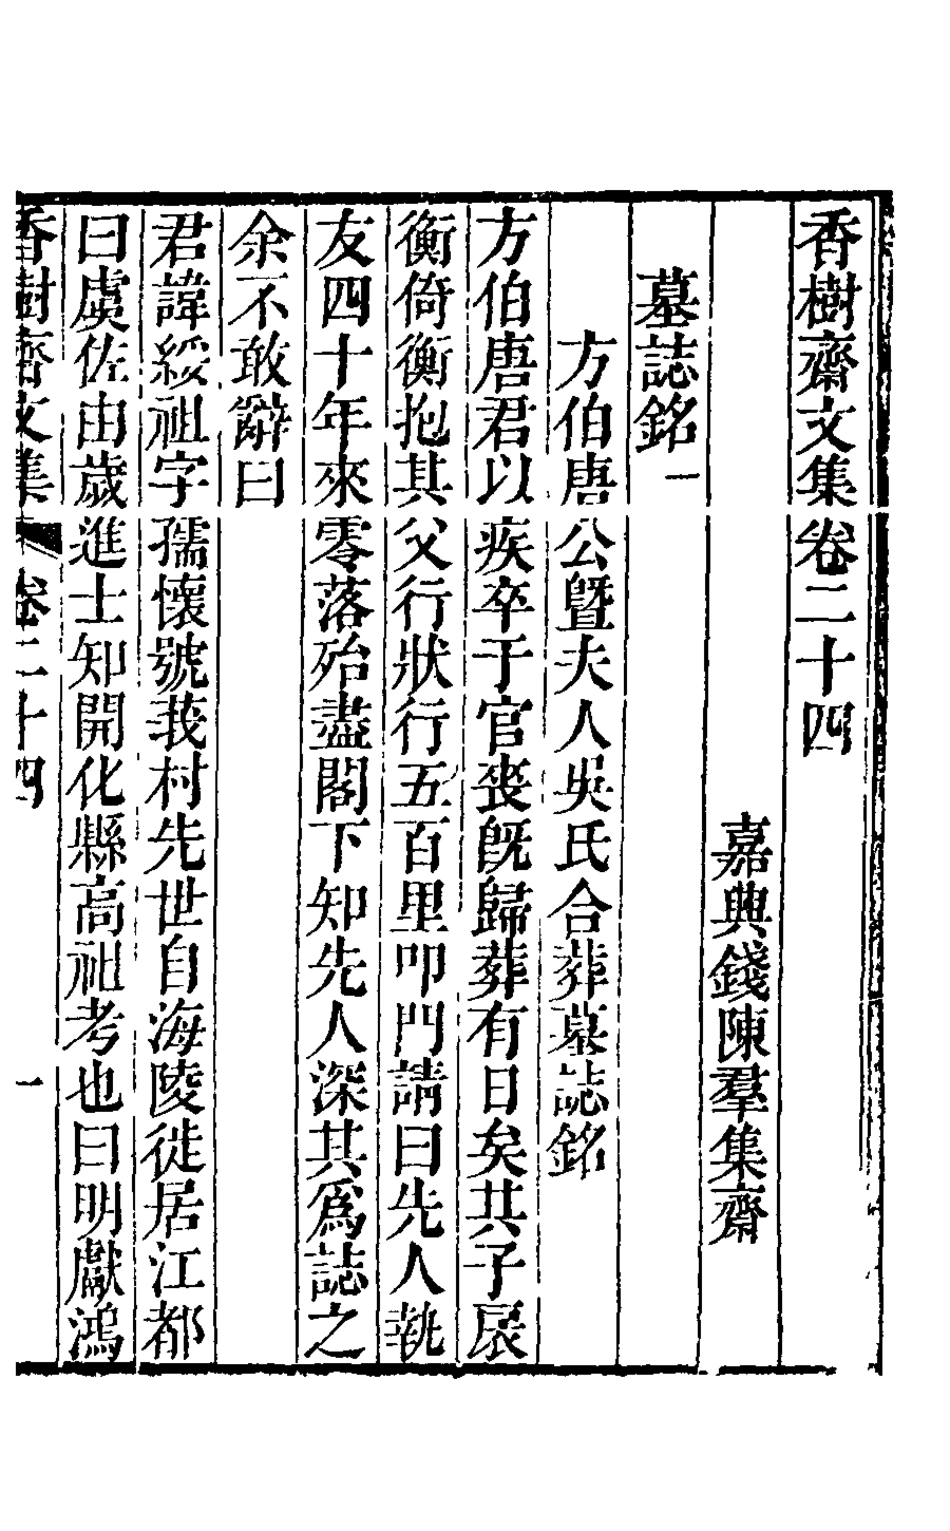 香樹齋文集卷二十四
嘉興錢陳羣集齋
墓誌銘一
方伯唐公暨夫人吳氏合葬墓誌銘
方伯唐君以疾卒于官喪旣歸葬有日矣其子扆
衡倚衡抱其父行狀行五百里叩門請曰先人執
友四十年來零落殆盡閣下知先人深其爲誌之
余不敢辭曰
君諱綏祖字孺懷號莪村先世自海陵徙居江都
曰虞佐由歲進士知開化縣高祖考也曰明獻鴻
香樹齋文集 卷二十四 一